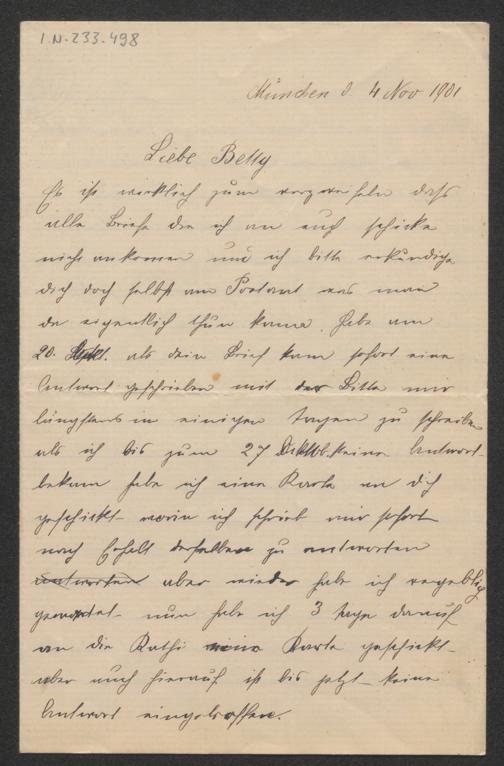 I.N. 233.498
München d 4 Nov 1901
Liebe Betty
Es ist wirklich zum verzweifeln dass
alle Briefe die ich an euch schicke
nicht ankomen und ich bitte erkundige
dich doch selbst am Postamt was man
da eigentlich thun kann. Habe am
20. als dein Brief kam sofort eine
Antwort geschrieben mit der Bitte mir
längstens in einigen tagen zu schreiben
als ich bis zum 27 Oktob. keine Antwort
bekam habe ich eine Karte an dich
geschickt worin ich schrieb mir sofort
nach Erhalt derselben zu antworten
antworten aber wieder habe ich vergeblich
gewartet nun habe ich 3 tage darauf
an die Kathi eine Karte geschickt
aber auch hierauf ist bis jetzt keine
Antwort eingetroffen.